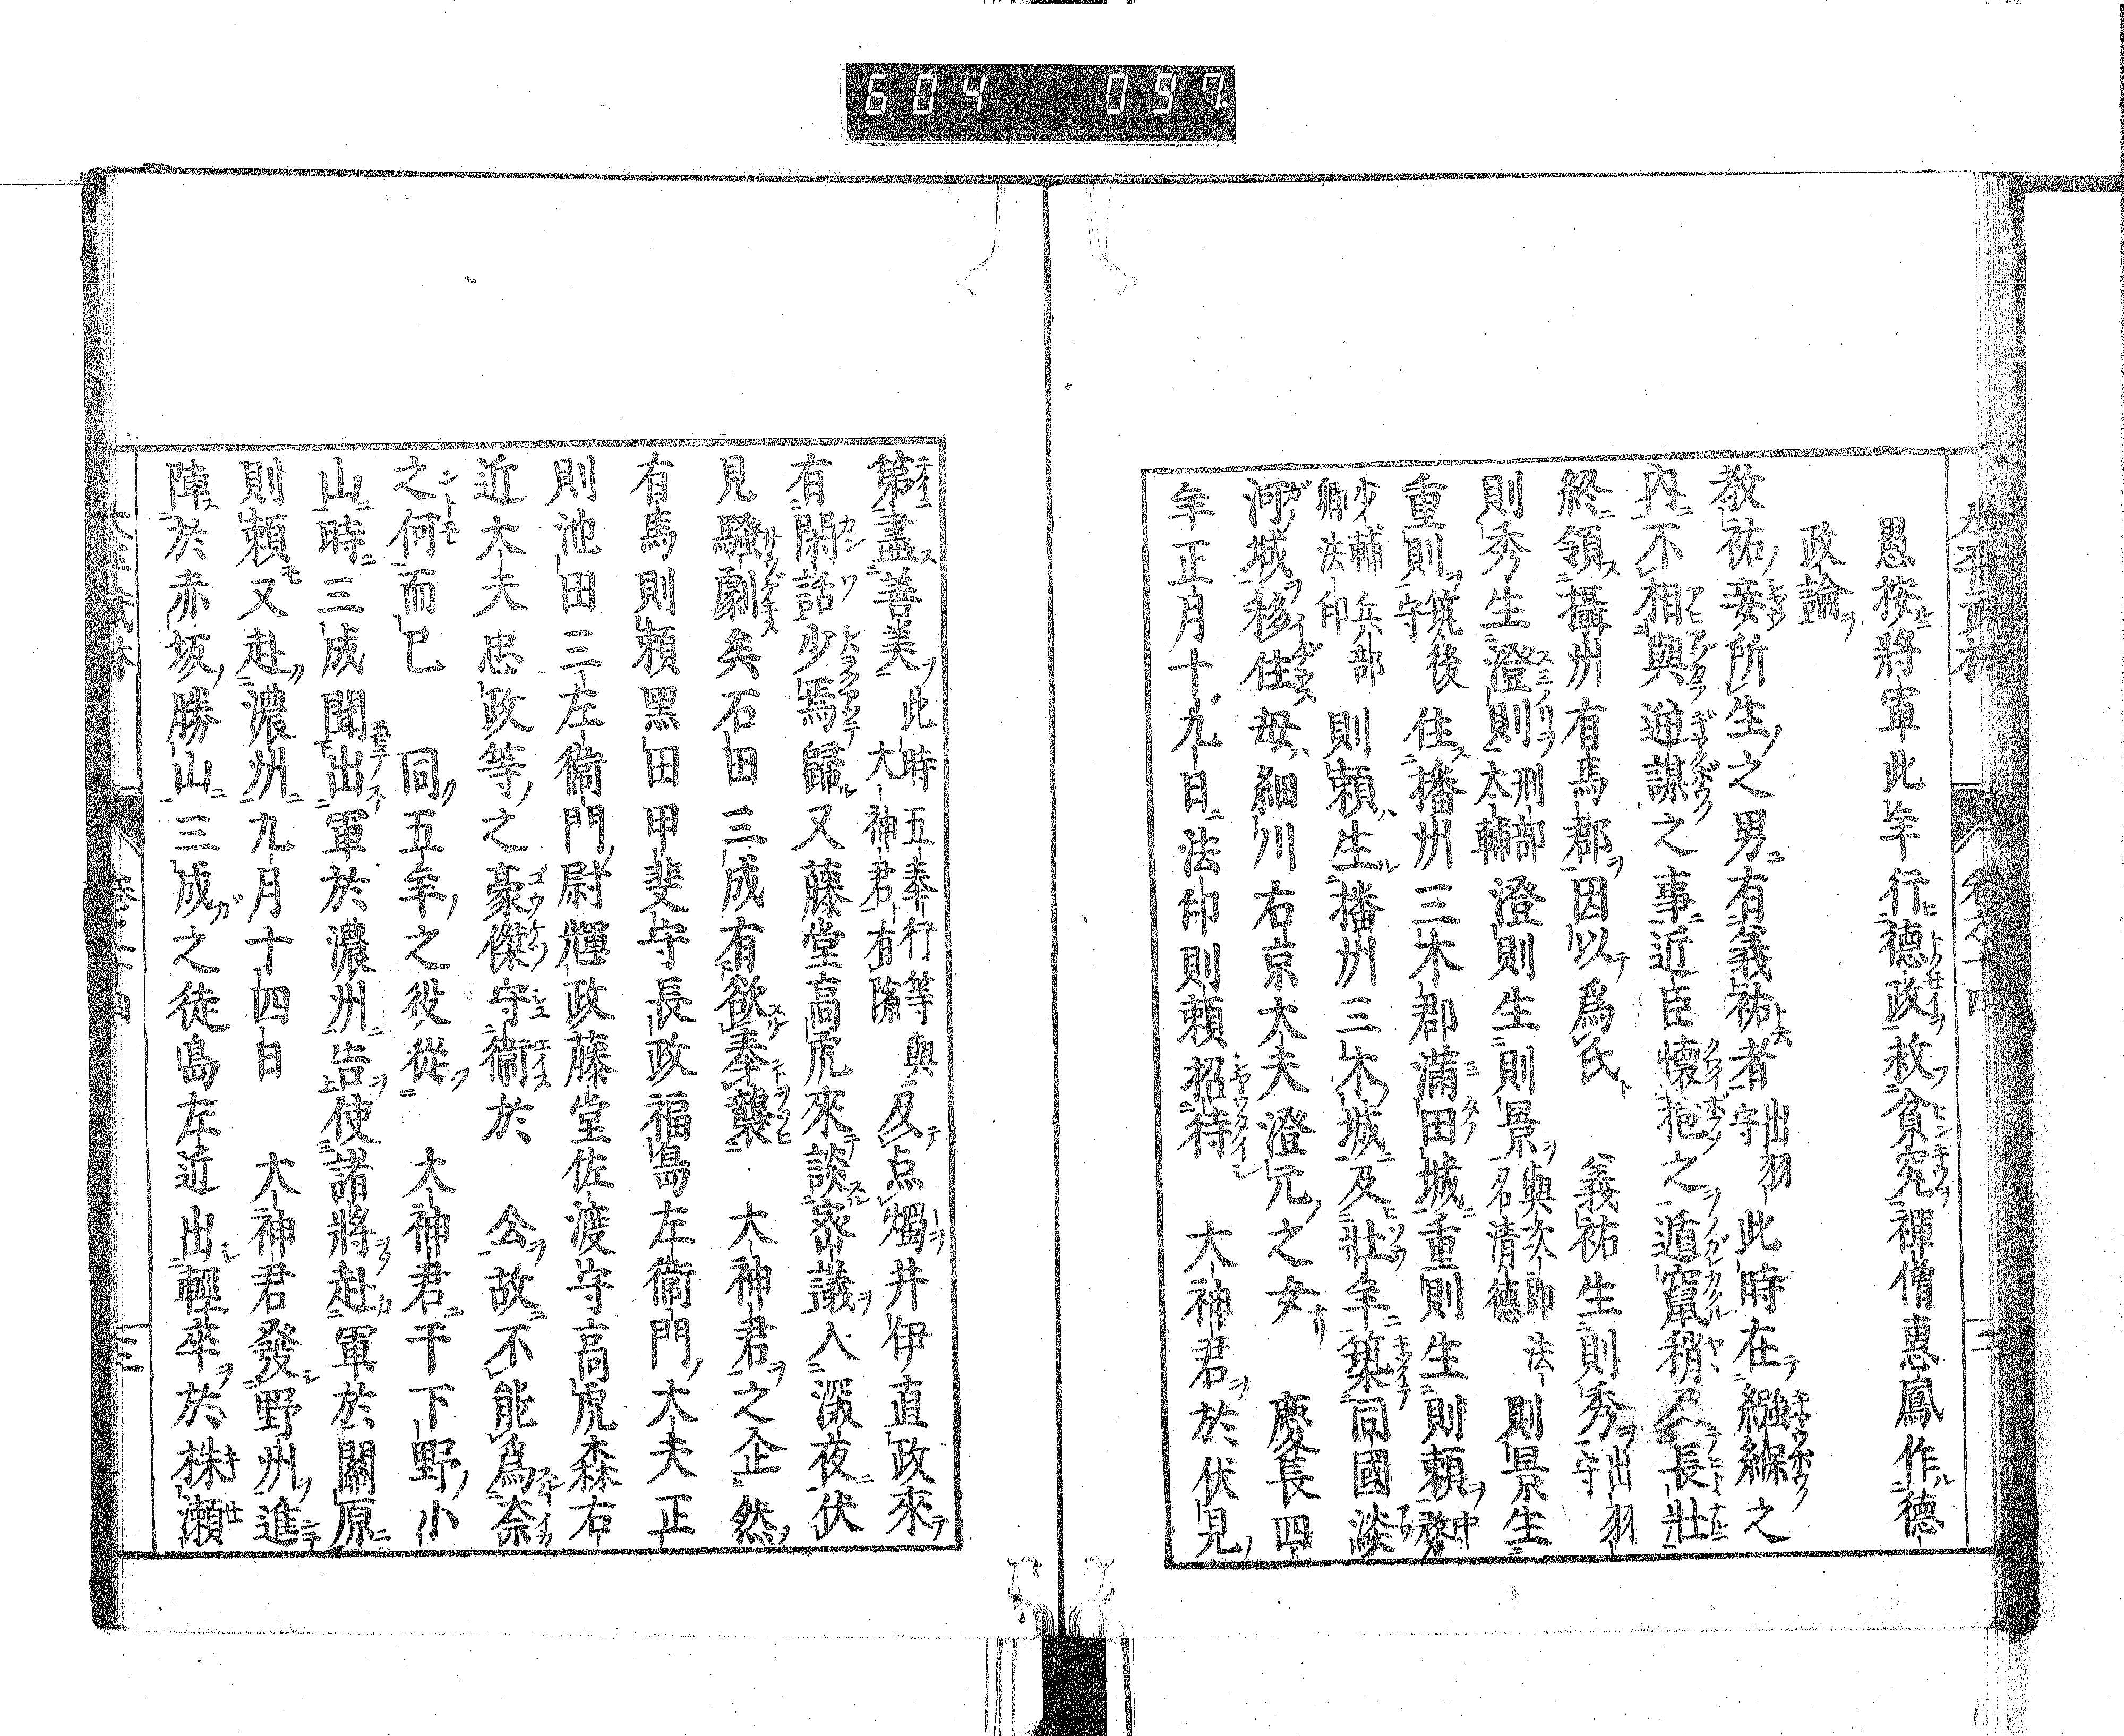 604 097
愚按將軍此年行德政救貧窮禪僧惠鳳作德
政論
教祐妾所生之男有義祐者出羽守此時在繦緥之
內不相與逆謀之事近臣懷抱之遁竄稍長壯
終領攝州有馬郡因以爲氏 義祐生則秀出羽守
則秀生澄則刑部太輔澄則生則景與次郎法名清德則景生
重則筑後守住播州三木郡滿田城重則生則頼中務
少輔兵部卿法印則頼生播州三木城及壯年築同國淡
河城移住母細川右京大夫澄元之女 慶長四
年正月十九日法印則頼招待 大神君於伏見
第盡善美此時五奉行等與大神君有隙及点燭井伊直政來
有閑話少焉歸又藤堂高虎來談密議入深夜伏
見騷劇矣石田三成有欲奉襲 大神君之企然
有馬則頼黑田甲斐守長政福島左衞門大夫正
則池田三左衞門尉輝政藤堂佐渡守高虎森右
近大夫忠政等之豪傑守衞於 公故不能爲奈
之何而已 同五年之役從 大神君干下野小
山時三成聞出軍於濃州告使諸將赴軍於關原
則頼又赴濃州九月十四日 大神君發野州進
陣於赤坂勝山三成之徒島左近出輕卒於株瀬
卷之十四
三